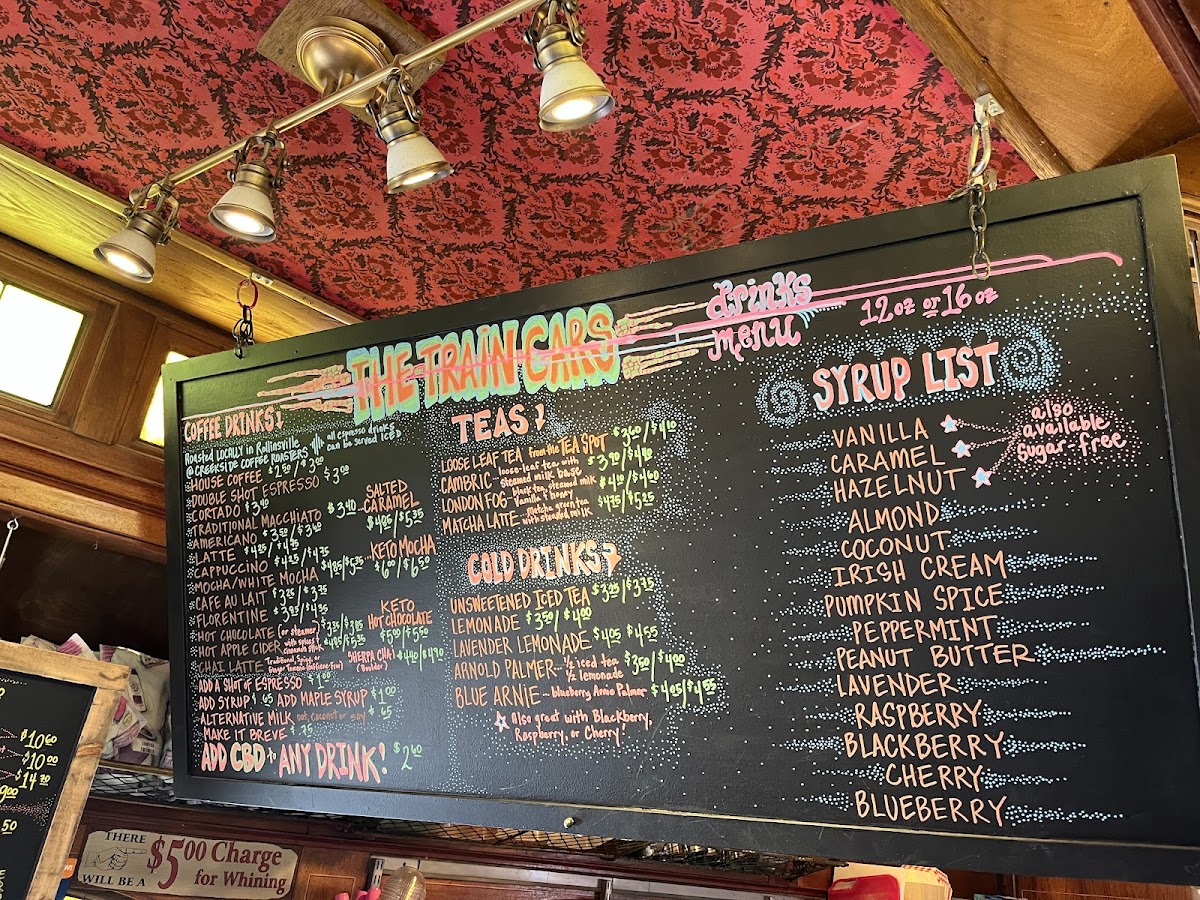 THE TRAIN CARS
drinks
menu
12 oz or 16 oz
COFFEE DRINKS!
Roasted LOCALLY in Rollinsville
@ CREEKSIDE COFFEE ROASTERS
all espresso drinks
can be served ICED
HOUSE COFFEE $2.50/$3.00
DOUBLE SHOT ESPRESSO $3.00
CORTADO $3.40
TRADITIONAL MACCHIATO $3.40
AMERICANO $3.50/$3.90
LATTE $4.25/$4.75
CAPPUCCINO $4.25/$4.75
MOCHA/WHITE MOCHA $4.85/$5.35
CAFE AU LAIT $3.25/$3.75
FLORENTINE $3.95/$4.35
HOT CHOCOLATE (or steamer) $3.35/$3.85
HOT APPLE CIDER with spices & cinnamon stick $4.85/$5.35
CHAI LATTE Traditional, Spicy, or
SHERPA CHAI $4.40/$4.90
(Boulder)
SALTED
CARAMEL
$4.85/$5.35
KETO MOCHA
$6.00/$6.50
KETO
HOT CHOCOLATE
$5.00/$5.50
ADD A SHOT OF ESPRESSO $1.00
ADD SYRUP $.65 ADD MAPLE SYRUP $1.00
ALTERNATIVE MILK oat, coconut or soy $.65
MAKE IT BREVE $.75
ADD CBD to ANY DRINK! $2.60
TEAS
LOOSE LEAF TEA from the TEA SPOT $3.60/$4.10
CAMBRIC - loose-leaf tea with
steamed milk base $3.90/$4.40
LONDON FOG - black tea, steamed milk
vanilla & honey $4.10/$4.60
MATCHA LATTE - matcha green tea
with steamed milk $4.75/$5.25
COLD DRINKS
UNSWEETENED ICED TEA $3.25/$3.75
LEMONADE $3.50/$4.00
LAVENDER LEMONADE $4.05 $4.55
ARNOLD PALMER - 1/2 iced tea
1/2 lemonade $3.50/$4.00
BLUE ARNIE - blueberry Arnie Palmer $4.05/$4.55
Also great with Blackberry,
Raspberry, or Cherry!
SYRUP LIST
VANILLA
CARAMEL
HAZELNUT
also
available
sugar-free
ALMOND
COCONUT
IRISH CREAM
PUMPKIN SPICE
PEPPERMINT
PEANUT BUTTER
LAVENDER
RASPBERRY
BLACKBERRY
CHERRY
BLUEBERRY
$10.60
$10.00
$14.20
THERE
WILL BE A
$5.00 Charge
for Whining